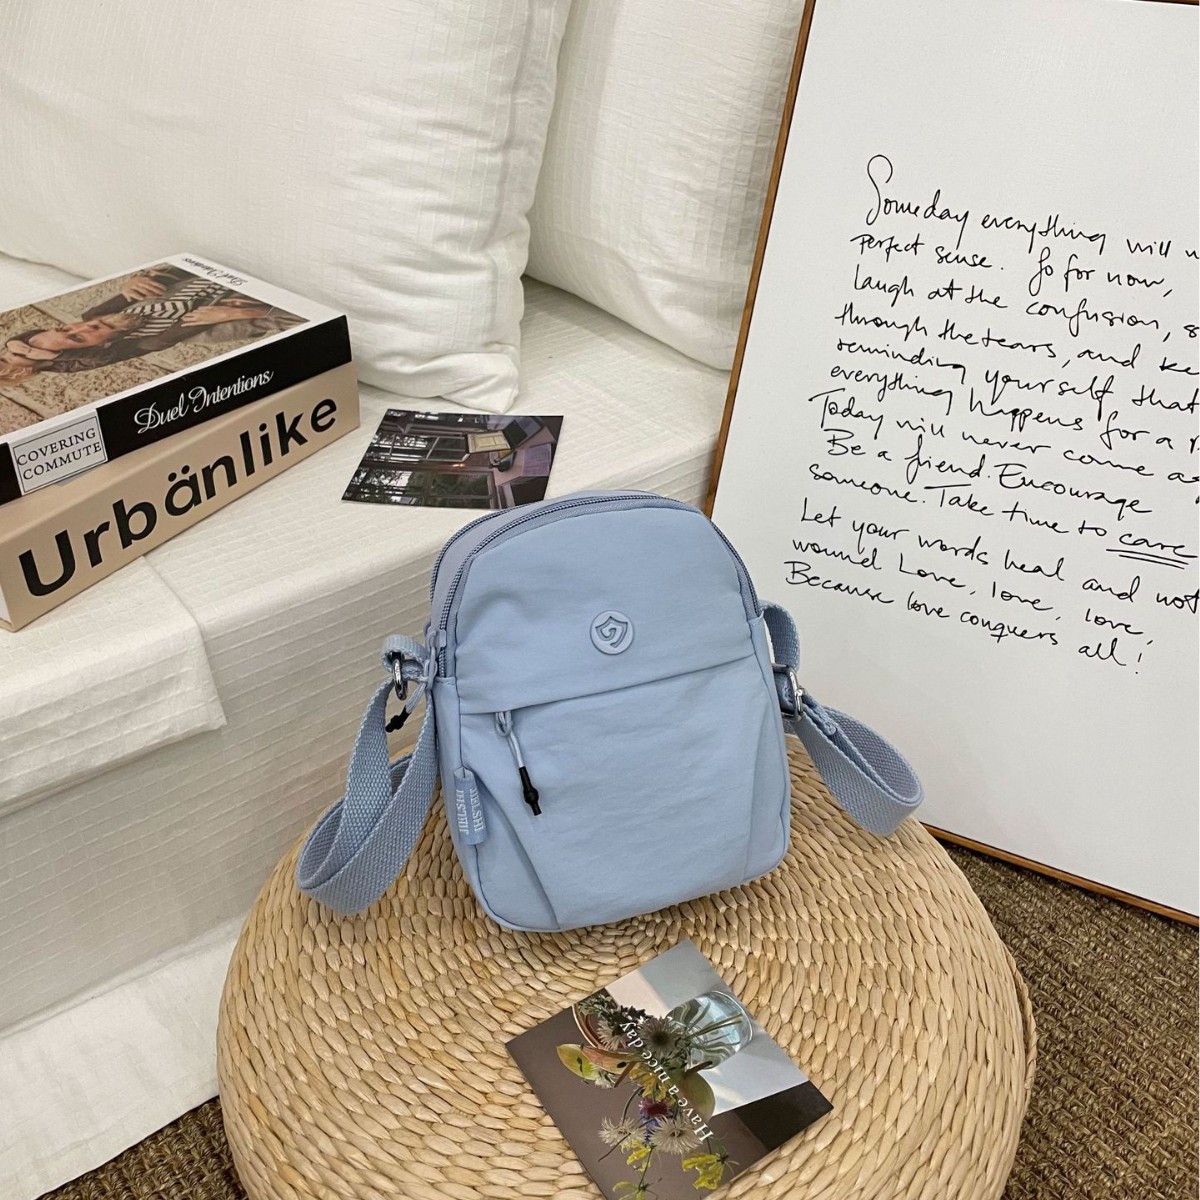 Duel Intentions
Duel Intentions
COVERING
COMMUTE
Urbänlike
Someday everything will
perfect sense. So for now,
laugh at the confusion, s
through the tears, and ke
reminding yourself that
everything happens for a r
Today will never come a
Be a friend. Encourage
someone. Take time to care
Let your words heal and not
wound Love, love, love,
Because love conquers all!
JIELSHI
JIELSHI
Have a nice day